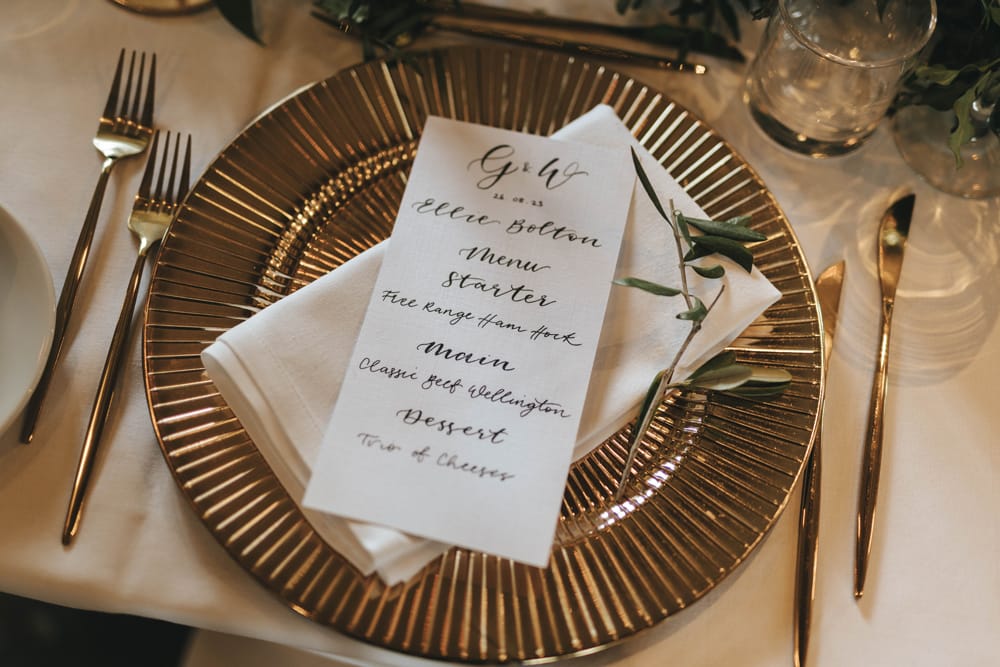 G & W
26.08.23
Ellie Bolton
Menu
Starter
Free Range Ham Hock
Main
Classic Beef Wellington
Dessert
Trio of Cheeses